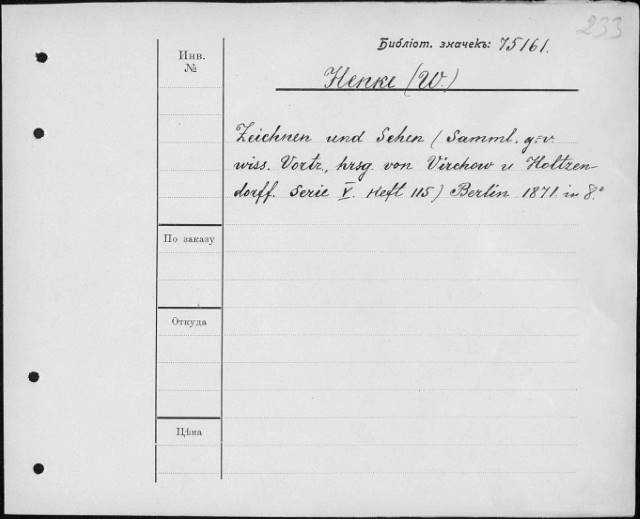 233
Библіот. значекъ: 75161.
Инв.
№
Henke (W.)
Zeichnen und Sehen (Samml. g=v.
wiss. Vortr., hrsg. von Virchow u Holtzen-
dorff. Serie V. Heft 115) Berlin 1871. in 8.º
По заказу
Откуда
Цѣна